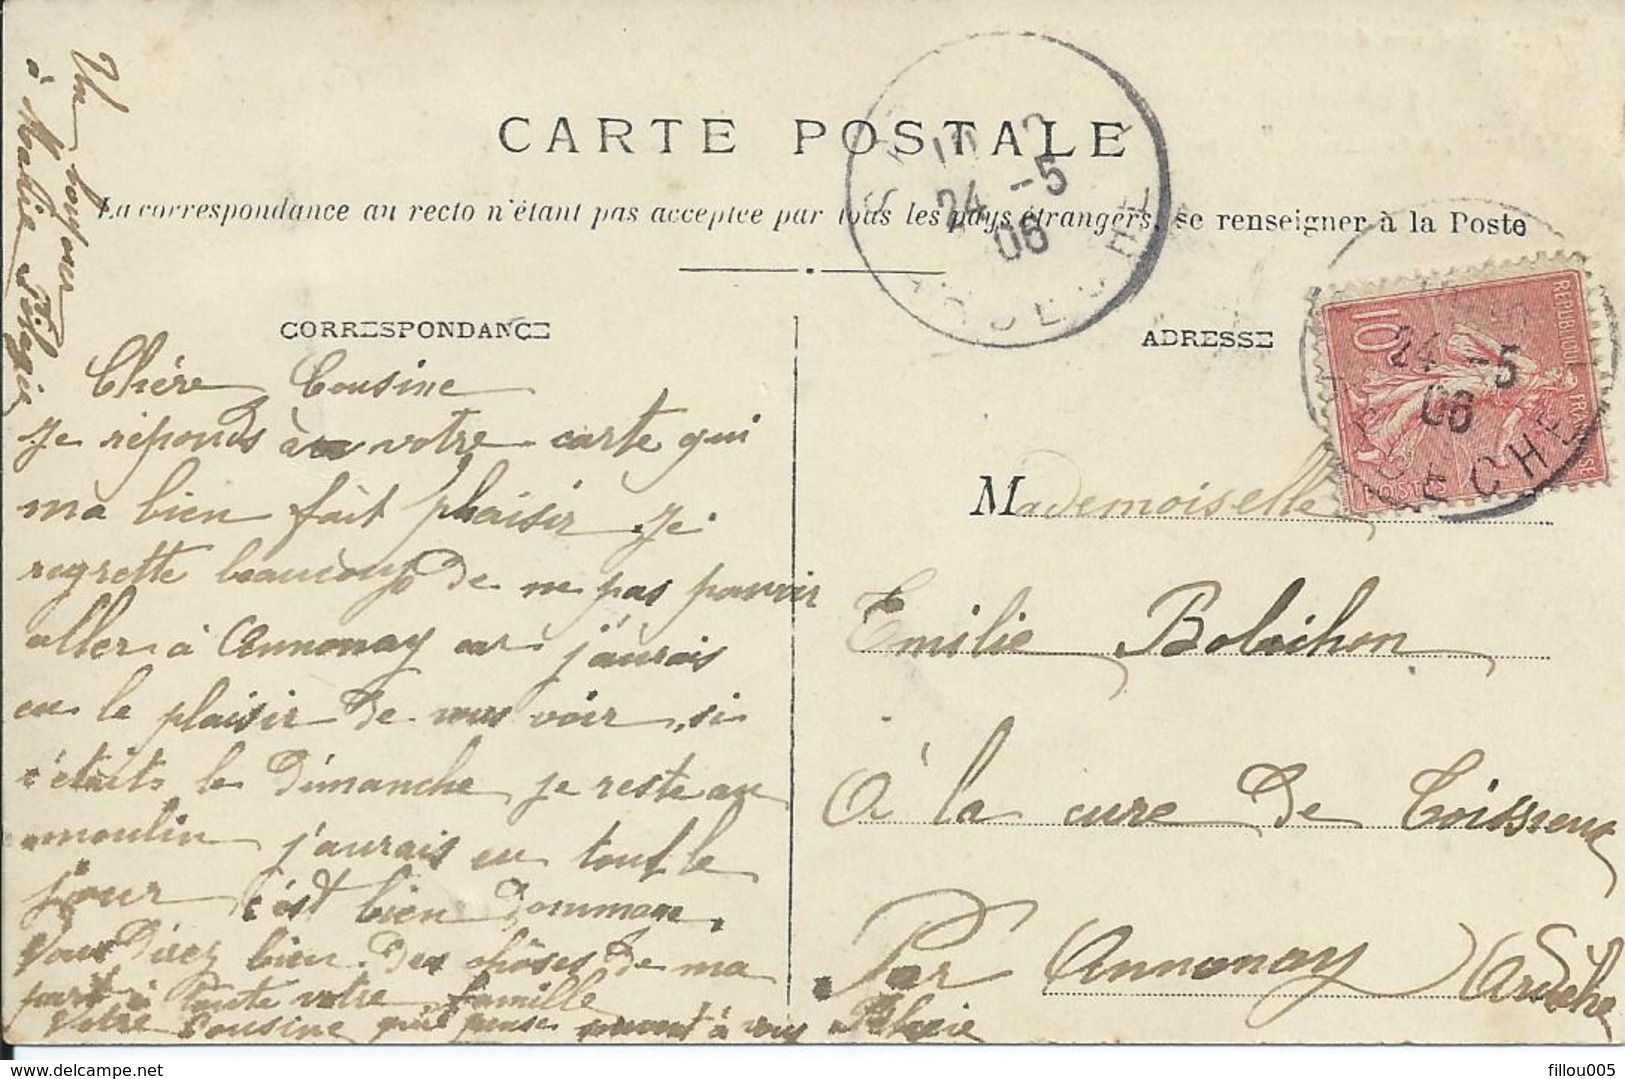 CARTE POSTALE
La correspondance au recto n'étant pas acceptée par tous les pays étrangers, se renseigner à la Poste
CORRESPONDANCE
ADRESSE
Un bonjour
à Marie
Chère Cousine
Je réponds à votre carte qui
ma bien fait plaisir Je
regrette beaucoup de ne pas pouvoir
aller à Annonay car j'aurais
eu le plaisir de vous voir si
s'étaits le Dimanche je reste au
moulin j'aurais eu tout le
jour c'est bien dommage.
Vous direz bien des chôses de ma
part à toute votre famille
Votre Cousine qui pense souvent à vous
24 -5
06
REPUBLIQUE FRANÇAISE
10
POSTES
24 -5
06
ARDECHE
Mademoiselle
Emilie Bobichon
à la cure de
Par Annonay (Ardèche
fillou005